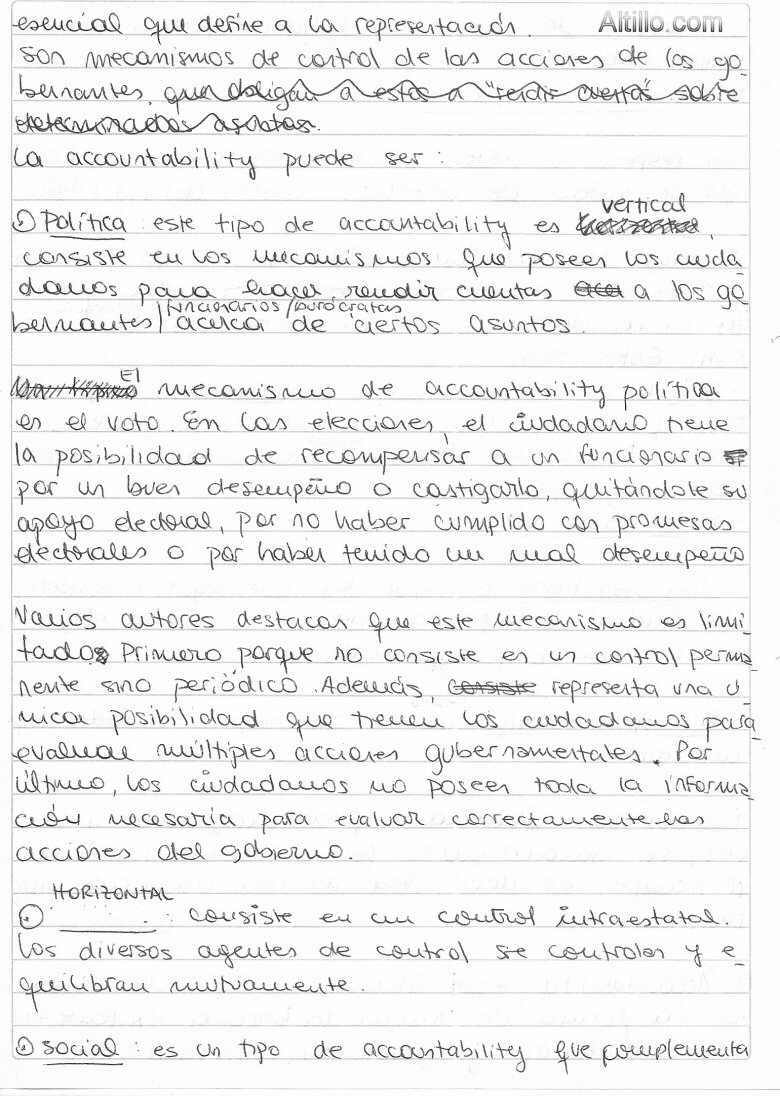 esencial que define a la representación.
Altillo.com
Son mecanismos de control de las acciones de los go-
bernantes, que obligan a estos a "rendir cuentas" sobre
determinados asuntos.
La accountability puede ser:
Política este tipo de accountability es vertical,
consiste en los mecanismos que poseen los ciuda
danos para hacer rendir cuentas a los go
bernantes/funcionarios/burócratas acerca de ciertos asuntos.
El mecanismo de accountability política
es el voto. En las elecciones, el ciudadano tiene
la posibilidad de recompensar a un funcionario
por un buen desempeño o castigarlo, quitándole su
apoyo electoral, por no haber cumplido con promesas
electorales o por haber tenido un mal desempeño
Varios autores destacan que este mecanismo es limi
tado. Primero porque no consiste en un control perma
nente sino periódico. Además, consiste representa una ú-
nica posibilidad que tienen los ciudadanos para
evaluar múltiples acciones gubernamentales. Por
último, los ciudadanos no poseen toda la informa
ción necesaria para evaluar correctamente las
acciones del gobierno.
HORIZONTAL
: consiste en un control intraestatal.
Los diversos agentes de control se controlan y e-
quilibran mutuamente.
Social: es un tipo de accountability que complementa